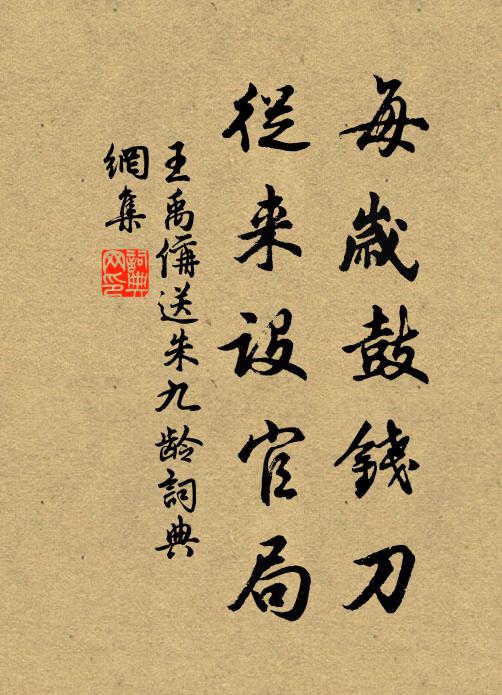 每歲鼓錢刀
從来設官局
王禹偁送朱九齡詞典
網集
詞典网印